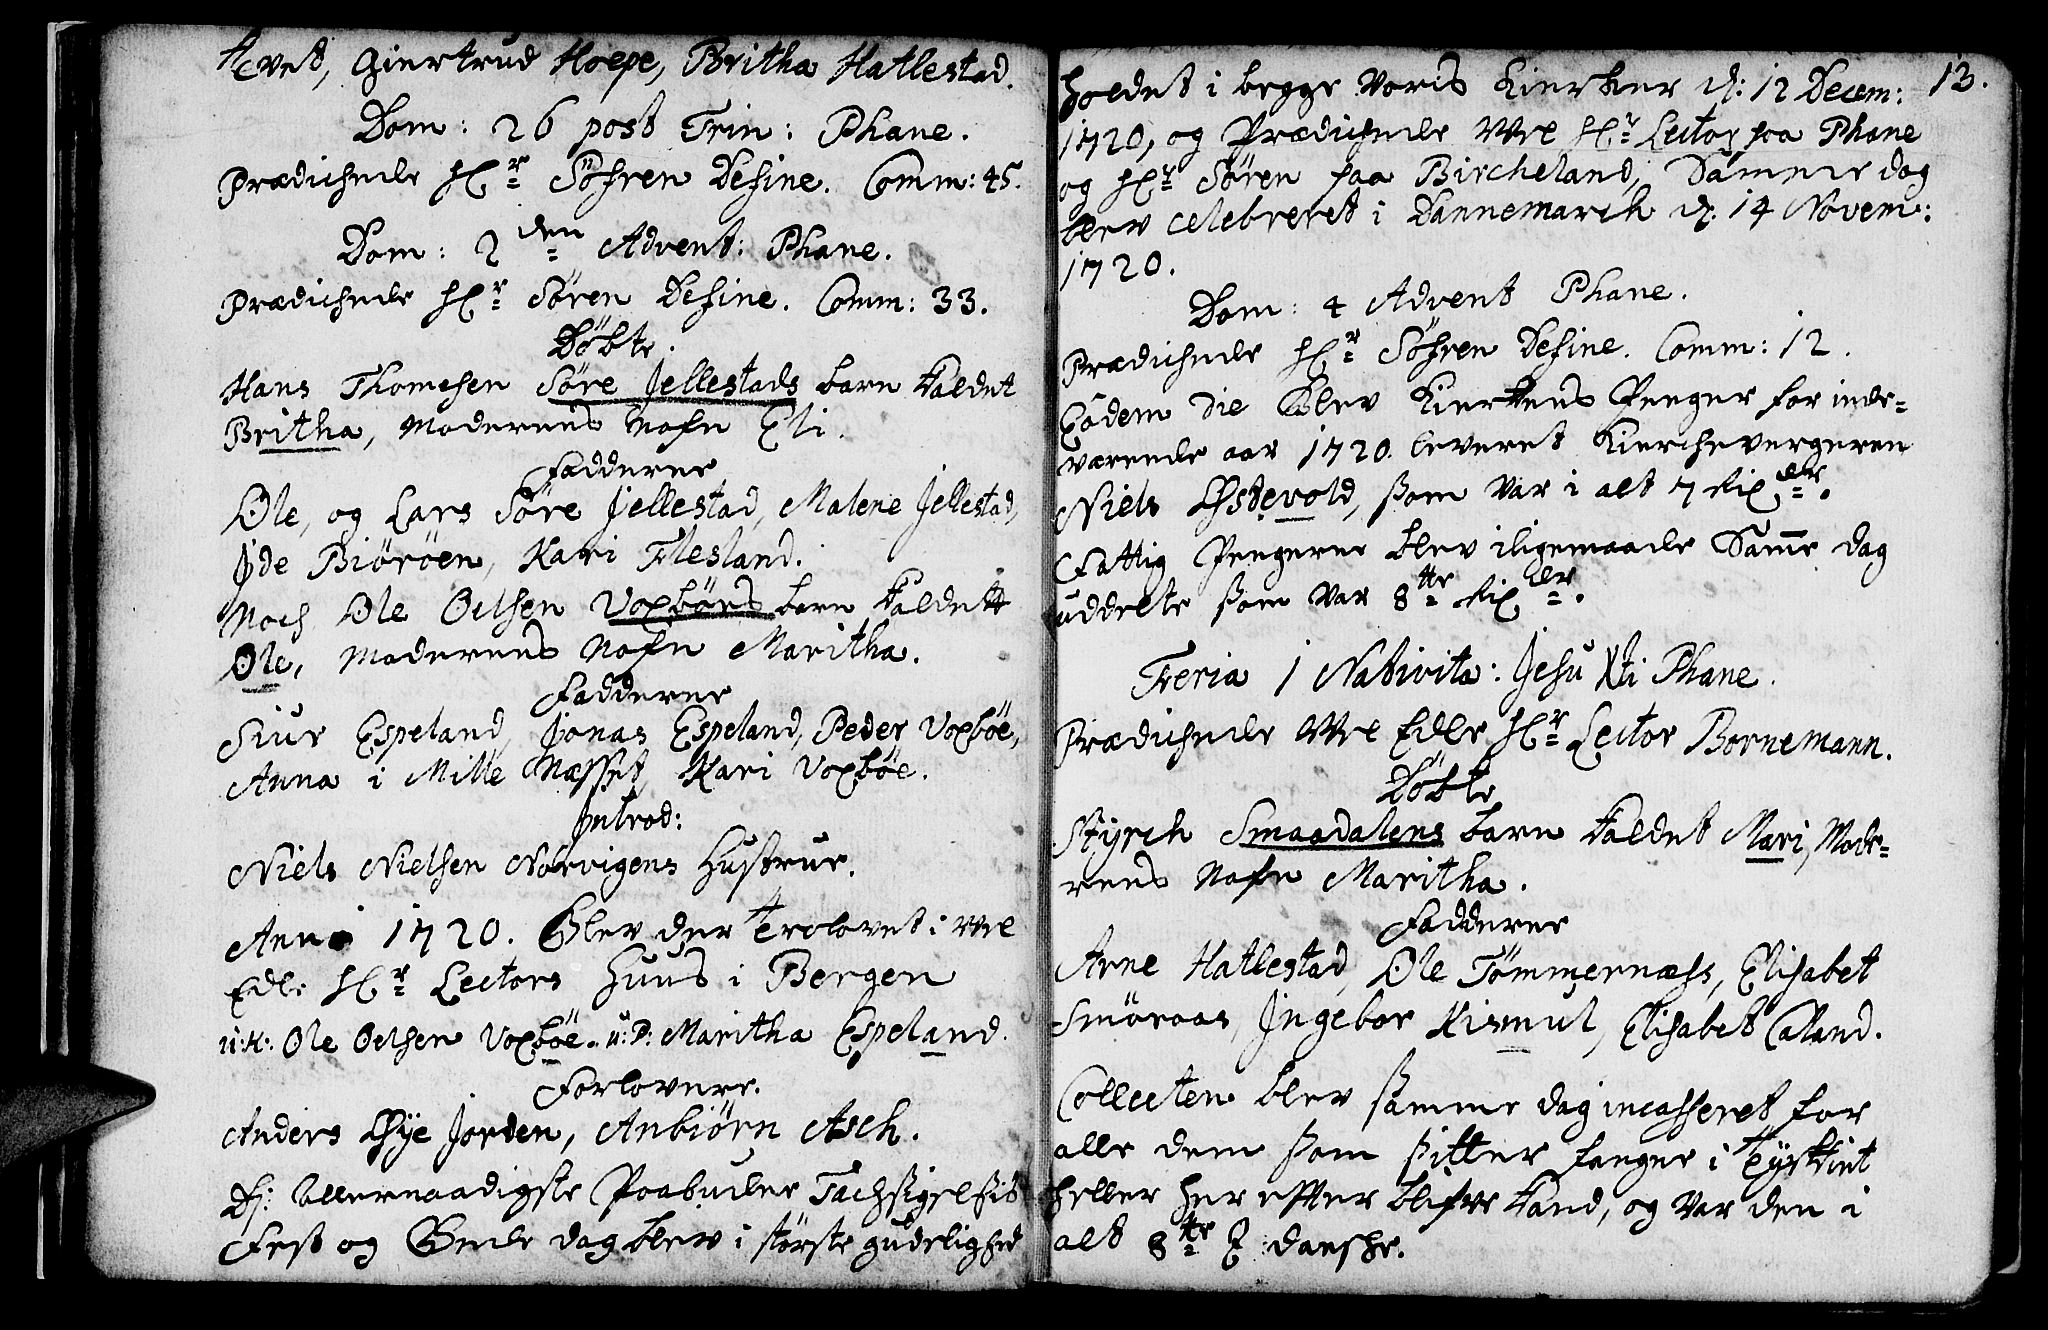 Tvet, Giertrud Hoepe, Britha Hatlestad.
Dom: 26 post Trin: Phane.
Prædichede Hr Söfren Define. Comm: 45.
Dom: 2 den Advent: Phane.
Prædichede Hr Sören Define. Comm: 33.
Döbte.
Hans Thomesen Söre Jellestads barn kaldet
Britha, Moderens Nafn Eli.
Fadderne
Ole, og Lars Söre Jellestad, Malene Jellestad,
Jde Biöröen, Kari Flesland.
Noch Ole Oelsen Voxböes barn kaldet
Ole, Moderens Nafn Maritha.
Fadderne
Siur Espeland, Jonas Espeland, Peder Voxböe,
Anna i Mille Næsset, Kari Voxböe.
Introd:
Niels Nielsen Norvigens Hustrue.
Anno 1720. Blev der Trolovet i Wel
Edle Hr Lectors Huus i Bergen
u:K: Ole Oelsen Voxböe. u:P: Maritha Espeland.
Forlovere.
Anders Øye Jorden, Anbiörn Asch.
Ds: Allernaadigste Paabudne Tachsigelsis
Fest og Bede dag blev i störste gudelighed
13.
holdet i begge Voris Kiercker d: 12 Decem:
1720, og Prædichede Wel Hr Lector paa Phane
og Hr Sören paa Bircheland, Samme dag
blev celebreret i Dannemarch d. 14 Novem:
1720.
Dom: 4 Advent Phane.
Prædichede Hr Söfren Define. Comm: 12.
Eodem die Blev Kierkens Penger for inde-
værende aar 1720. leveret Kierchevergeren
Niels Østevold, som var i alt 7 Rix dlr.
Fattig Pengene blev iligemaade Samme dag
uddelte som var 8tte Rix dlr.
Feria 1 Nativita: Jesu Xti Phane.
Prædichede Wel Edle Hr Lector Bornemann.
Döbte
Styrch Smaadalens barn kaldet Mari, Mode-
rens Nafn Maritha.
Fadderne
Arne Hatlestad, Ole Tömmernæss, Elisabet
Smöraas, Jngebor Kismul, Elisabet Caland.
Collecten blev samme dag incasseret for
alle dem som sitter fanger i Tyrkiet
heller her efter blifve kand, og var den i
alt 8tte danshe.